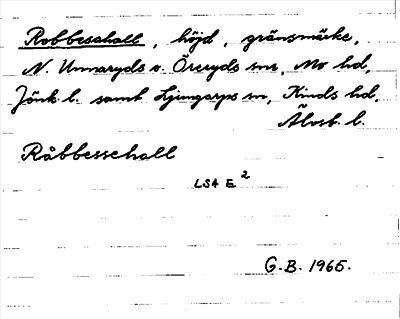 Robbeschall, höjd, gränsmärke,
N. Unnaryds o. Öreryds snr, Mo hd,
Jönk. l. samt Ljungarps sn, Kinds hd,
Älvsb. l.
Råbbesschall
LSA E²
G.B. 1965.